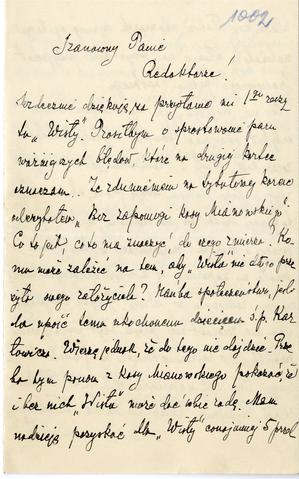 1002
Szanowny Panie
Redaktorze!
Serdecznie dziękuję za przysłanie mi 1go zeszy
tu „Wisły". Prosiłbym o sprostowanie paru
ważniejszych błędów, które na drugiej kartce
Ze zdumieniem na
„Bez zapomogi Kasy Mianowskiego".
Co to jest, co to ma znaczyć, do czego zmierza? Ko
mu może zależeć na tem, aby „Wisła" nie długo prze
żyła swego założyciela? Hańba społeczeństwu, jeśli
da upaść temu ukochanemu dziecięciu ś.p. Kar
łowicza. Wierzę jednak, że do tego nie dojdzie. Trze
ba tym panom z Kasy Mianowskiego pokazać, że
i bez nich „Wisła" może dać sobie radę. Mam
nadzieję pozyskać dla „Wisły" conajmniej 5